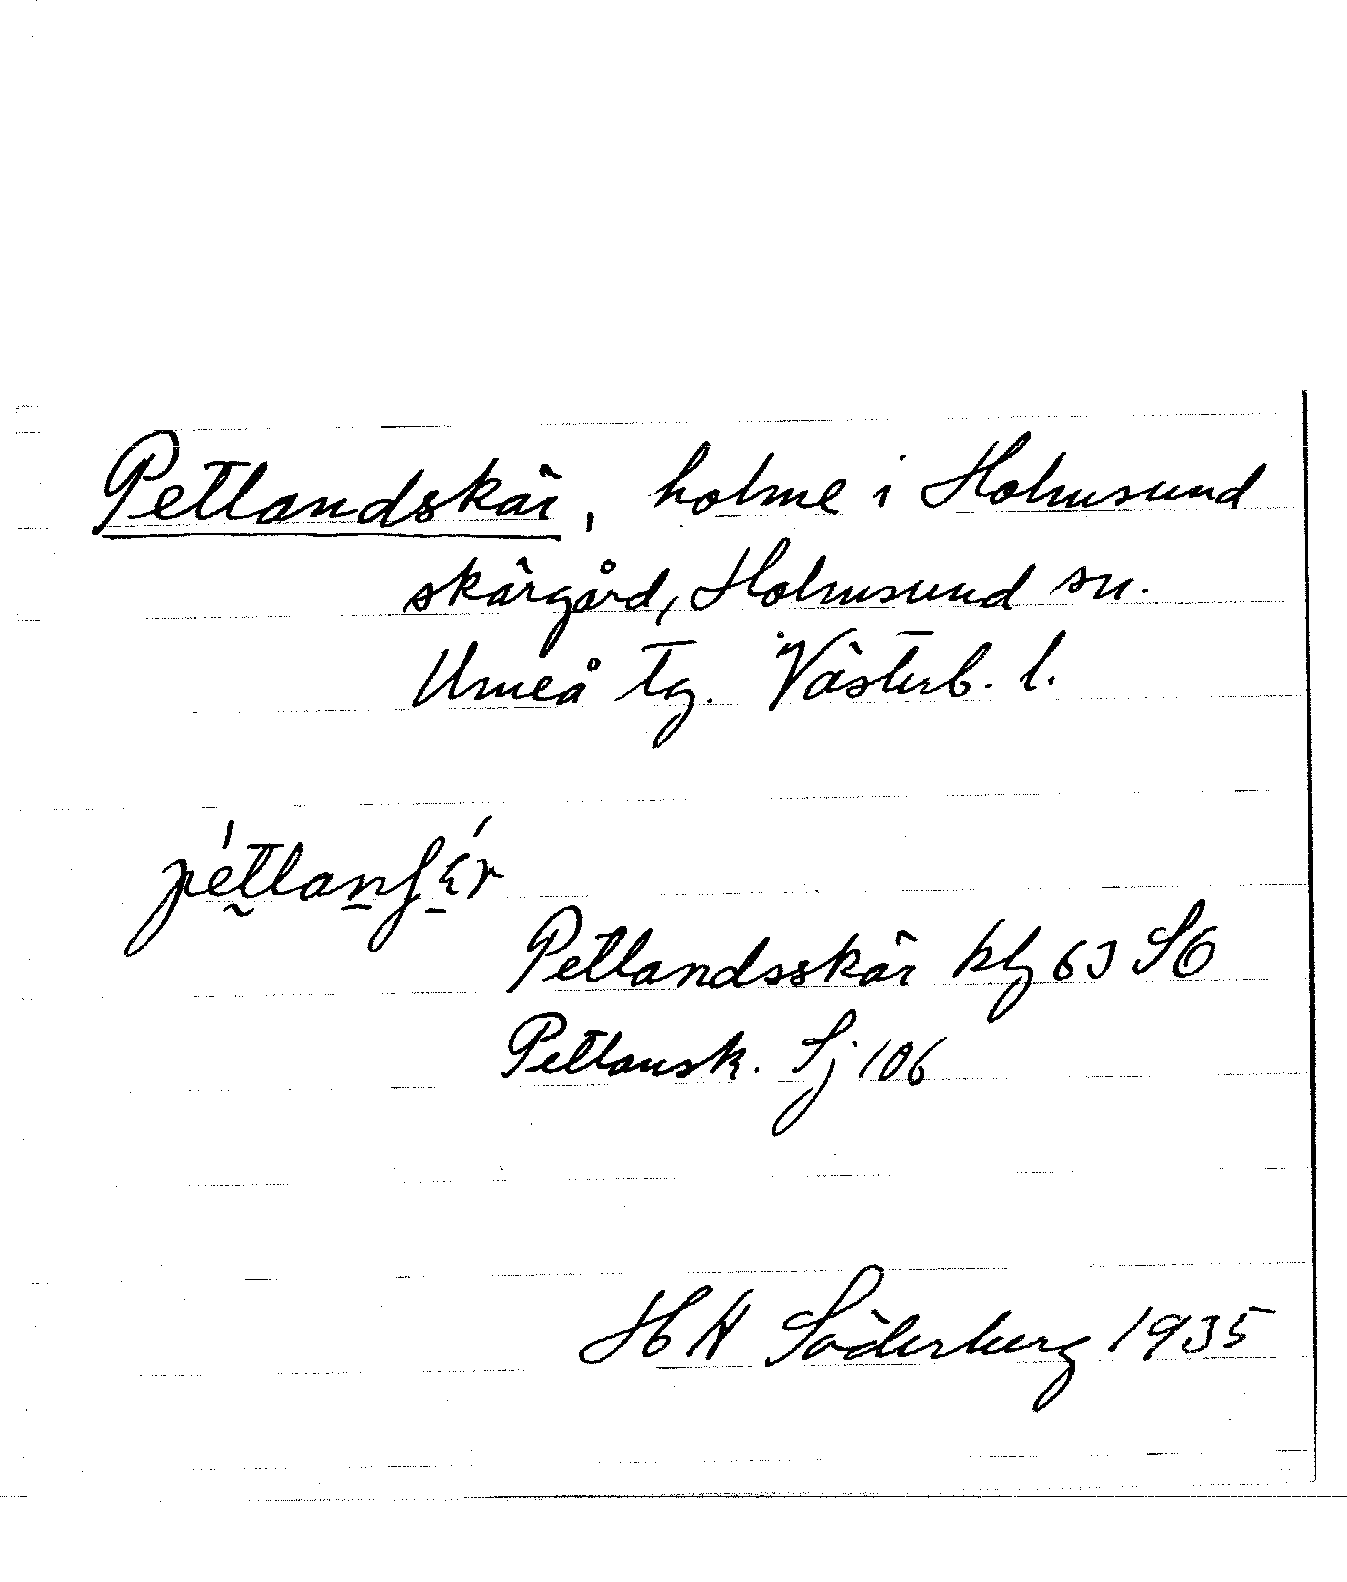 Petlandskär, holme i Holmsund
skärgård, Holmsund sn.
Umeå tg. Västerb. l.
Petlandsskär kbl 63 SO
Petlansk. Sj 106
H H Söderberg 1935